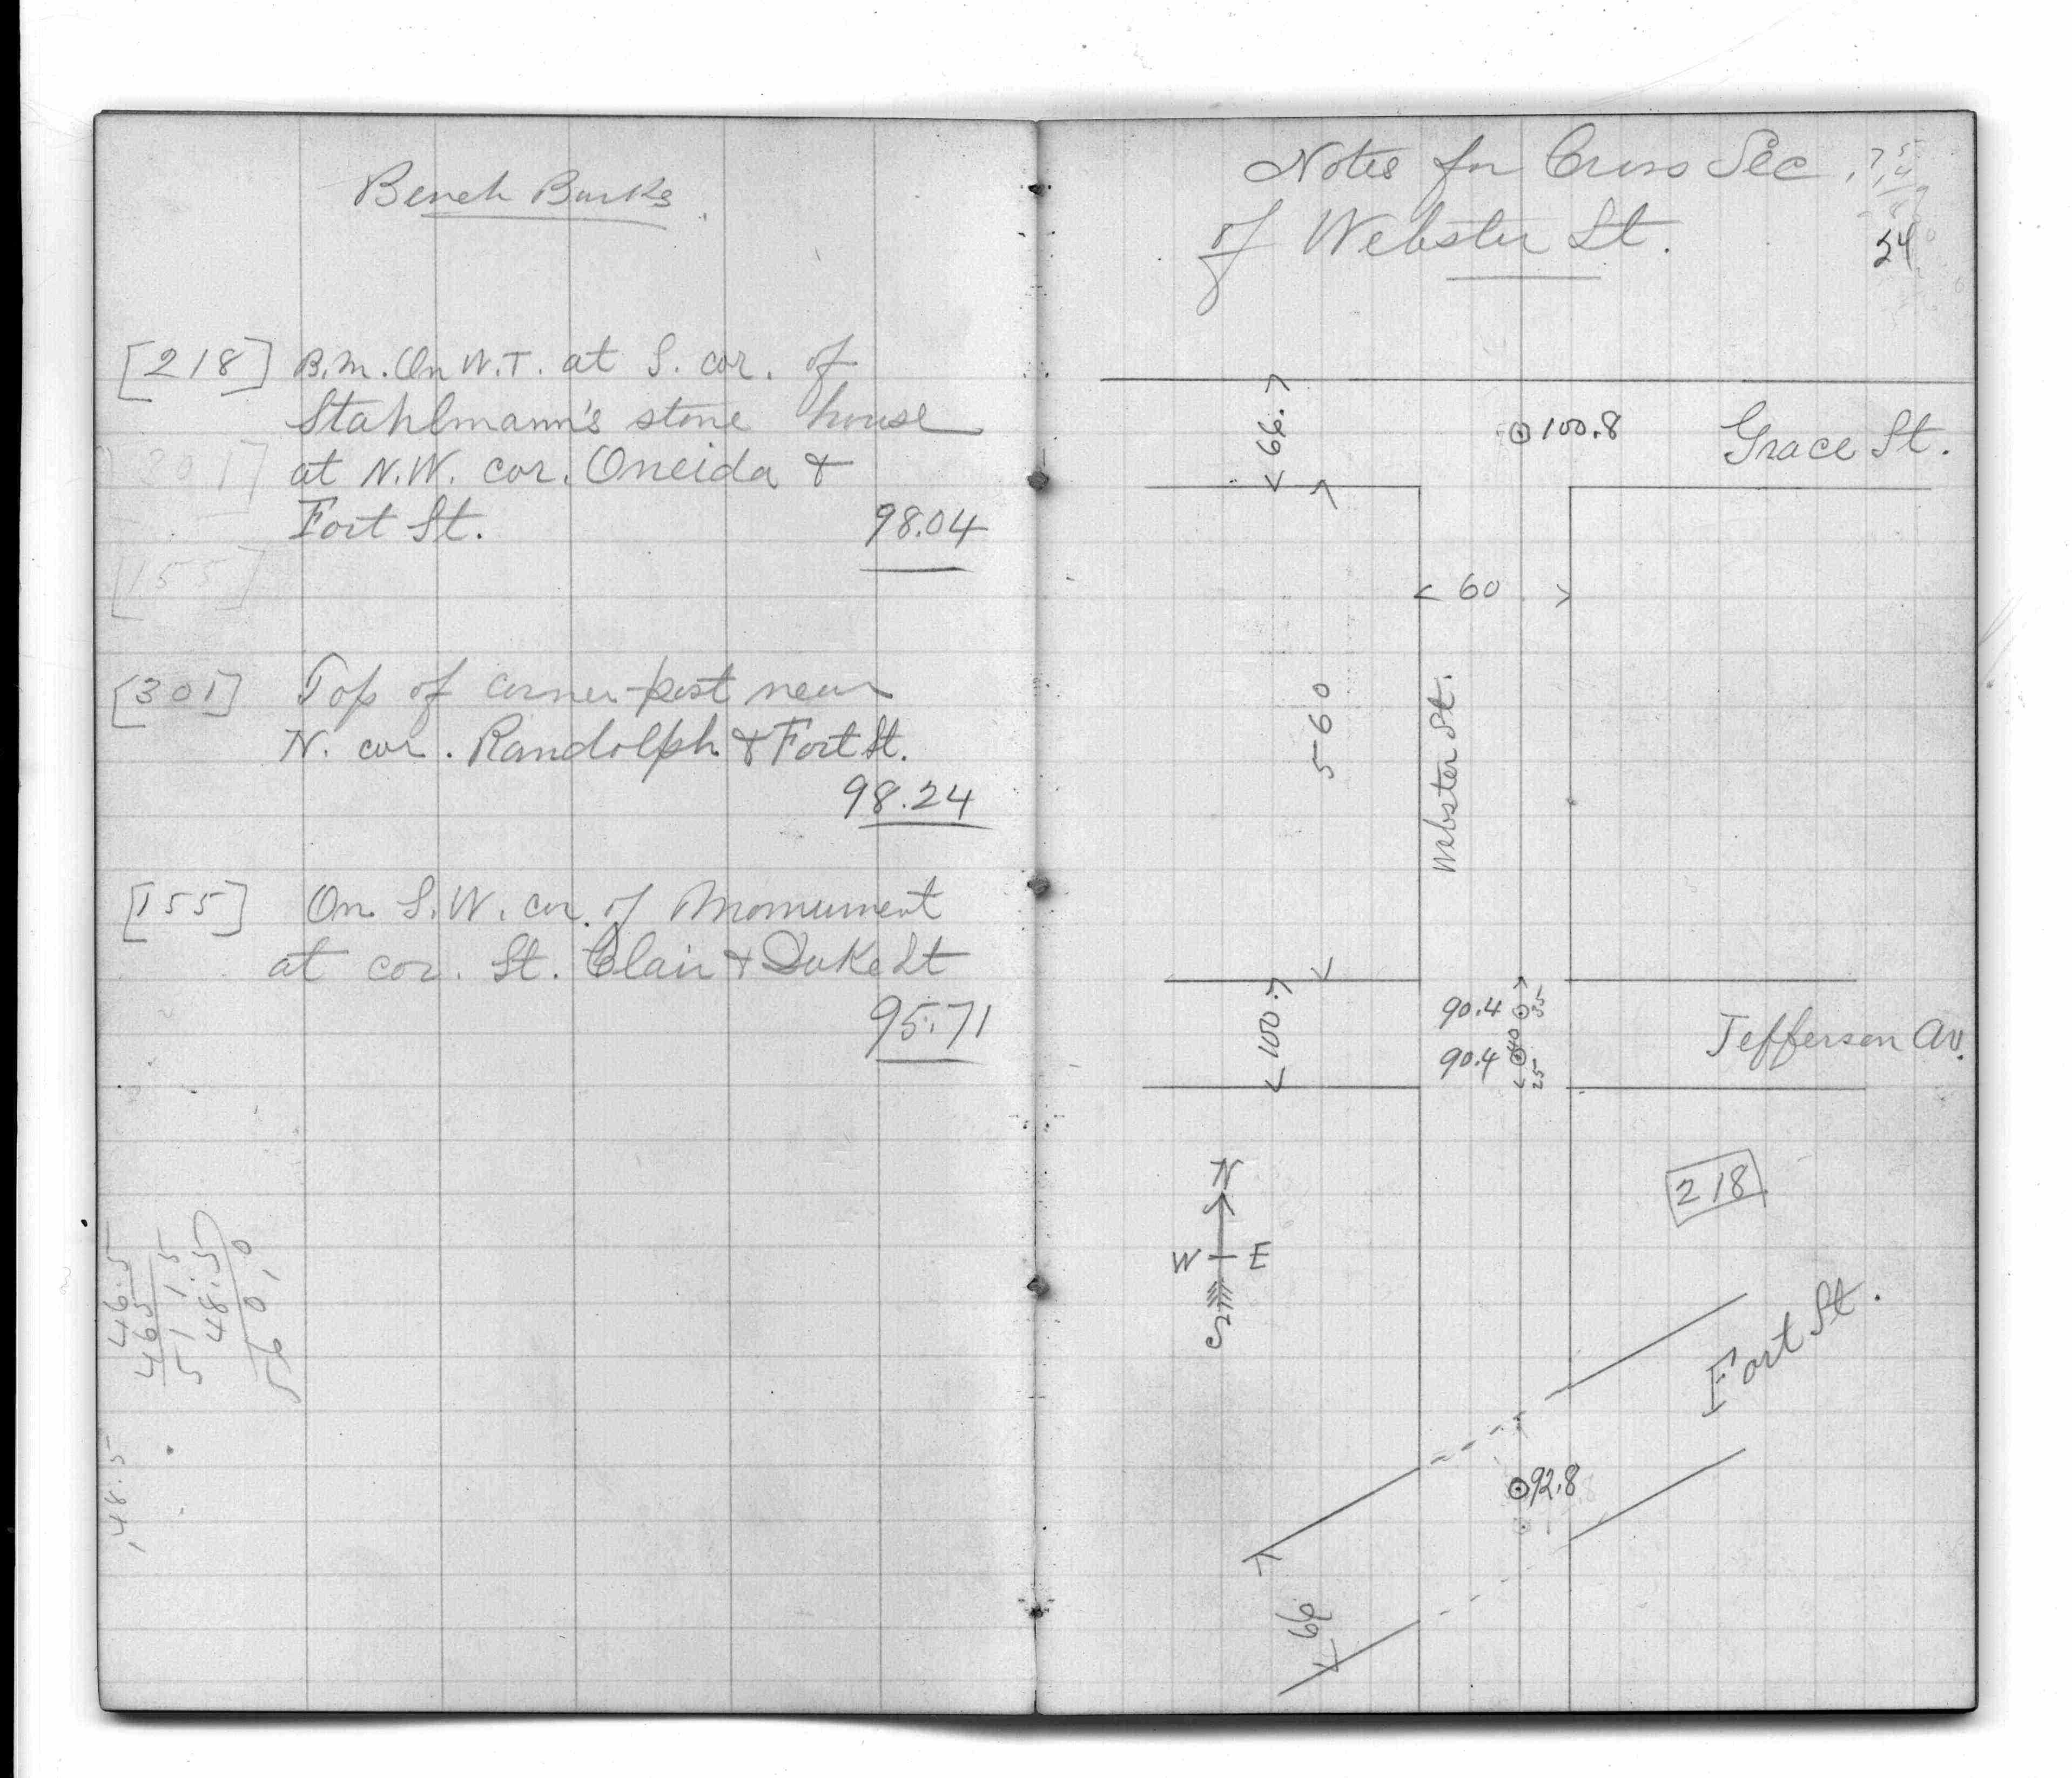 Bench Burks
[218] B.M. On W.T. at S. cor. of
Stahlmann's stone house
at N.W. cor. Oneida &
Fort St. 98.04
[301]
[155]
[301] Top of corner-post near
N. cor. Randolph & Fort St.
98.24
[155] On S.W. cor. of Monument
at cor. St. Clair & Duke St
95.71
46.5
465
511.5
48.5
560,0
48.5
Notes for Cross Sec.
of Webster St.
54
66.7
100.8
Grace St.
60
560
Webster St.
100.7
90.4
15
40
90.4
25
Jefferson Av.
218
N
W E
S
Fort St.
92.8
66